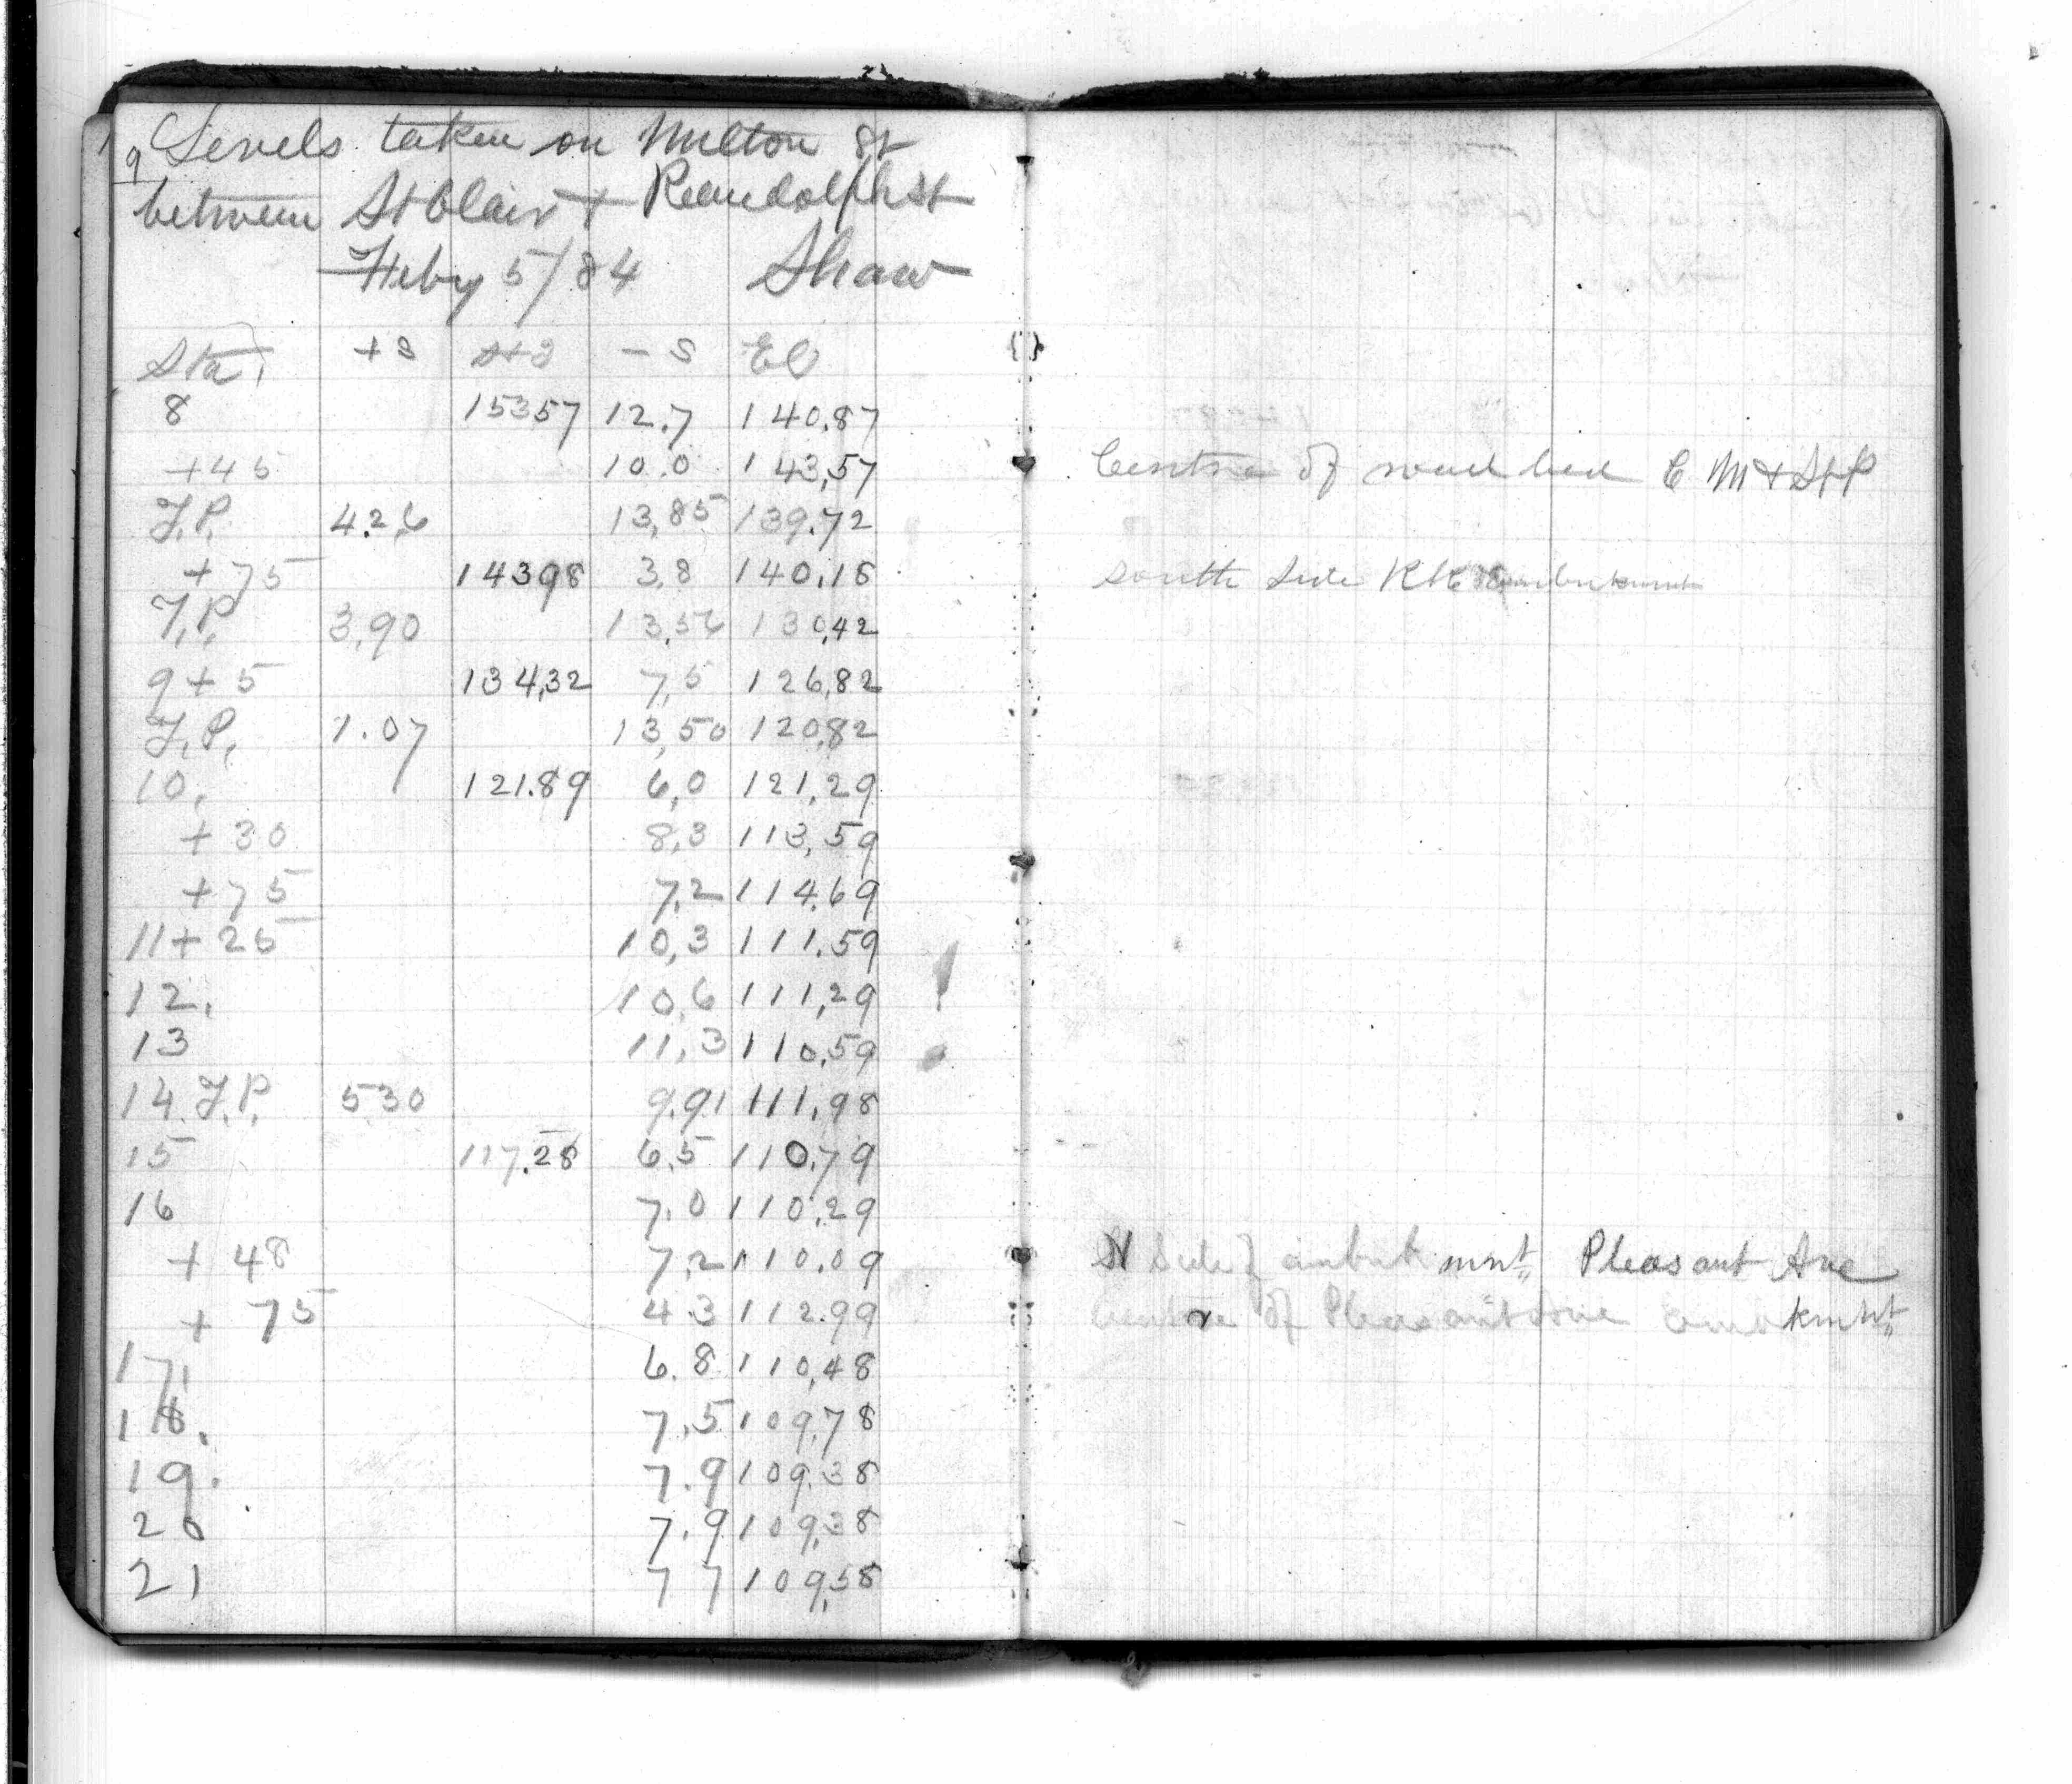 9 Levels taken on Milton St
between St Clair + Randolph st
Feby 5/84 Shaw
Sta. +S - S El
8 15357 12.7 140.87
+45 10.0 143,57 Centre of road bed C M + St P
T.P. 4.26 13,85 139.72
+75 14398 3,8 140.18 south side RR embankment
T.P. 3,90 13,56 130,42
9+5 134,32 7,5 126,82
T.P. 1.07 13,50 120,82
10. 121.89 6,0 121,29
+30 8,3 113,59
+75 7.2 114.69
11+25 10,3 111.59
12. 10,6 111,29
13 11,3 110,59
14. T.P. 5.30 9.91 111.98
15 117.28 6.5 110.79
16 7.0 110,29
+ 48 7,2 110.09 N Side of embankmnt Pleasant Ave
+ 75 4.3 112.99 Centre of Pleasant Ave embkmnt
17. 6.8 110,48
18. 7.5 109.78
19. 7.9 109.38
20 7.9 109,38
21 7 7 109,58